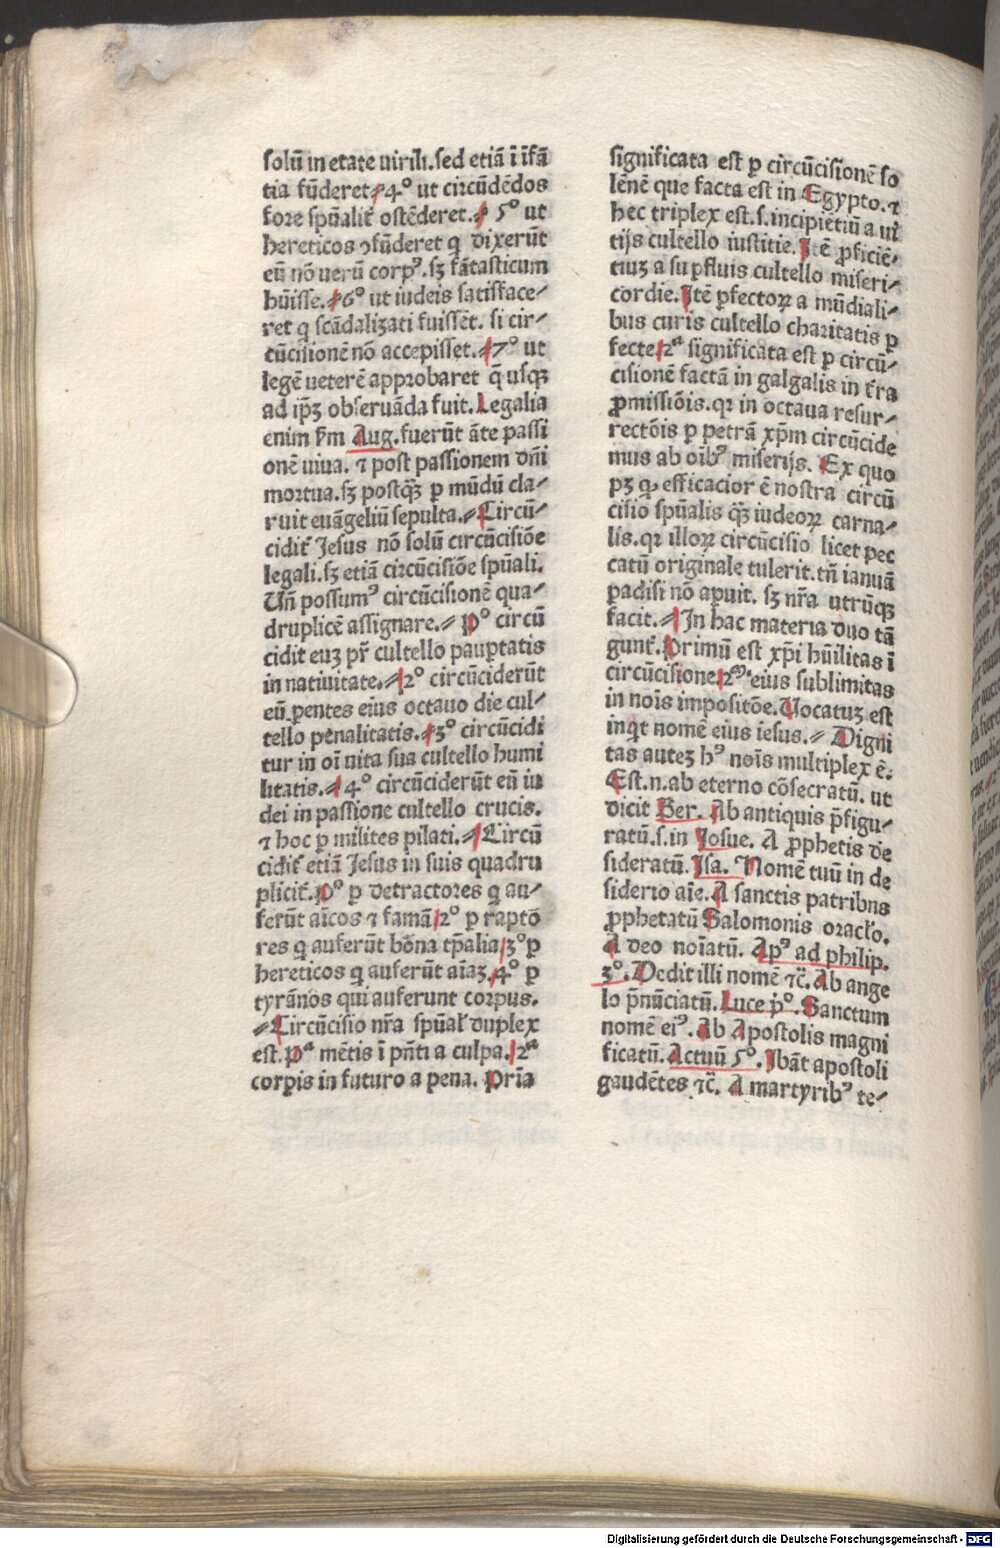 solū in etate uirili. sed etiā ī īfā
tia fūderet ⸗4° ut circūdēdos
fore spūalit̄ ostēderet.⸗ 5° ut
hereticos ꝯfūderet q dixerūt
eū nō uerū corpꝰ. sꝫ fātasticum
hūisse.⸗6° ut iudeis satisface⸗
ret q scādalizati fuissēt. si cir⸗
cūcisionē nō accepisset.⸗7° ut
legē ueterē approbaret q̄ usqꝫ
ad ip̄ꝫ obseruāda fuit. Legalia
enim ẜm Aug. fuerūt āte passi
onē uiua. ⁊ post passionem dn̄i
mortua. sꝫ postqꝫ̄ p mūdū cla⸗
ruit euāgeliū sepulta.⸗Circū⸗
cidit̄ Jesus nō solū circūcisiōe
legali. sꝫ etiā circūcisiōe spūali.
Un̄ possumꝰ circūcisionē qua⸗
druplicē assignare.⸗ p° circū
cidit euꝫ pr̄ cultello pauꝑtatis
in natiuitate.⸗2° circūciderūt
eū ꝑentes eius octauo die cul⸗
tello penalitatis.⸗3° circūcidi
tur in oī uita sua cultello humi
litatis.⸗4° circūciderūt eū iu
dei in passione cultello crucis.
⁊ hoc ꝑ milites pilati.⸗Circū
cidit̄ etiā Jesus in suis quadru
plicit̄. p° ꝑ detractores q au⸗
ferūt aīcos ⁊ famā 2° ꝑ raptō
res q auferūt bōna tp̄alia 3° ꝑ
hereticos q auferūt aīaꝫ. 4° ꝑ
tyrānos qui auferunt corpus.
⸗Circūcisio nr̄a spūal̄ duplex
est. pᵃ mētis ī pn̄ti a culpa. 2ᵃ
corꝑis in futuro a pena. Pria
significata est ꝑ circūcisionē so
lēnē que facta est in Egypto. ⁊
hec triplex est. s. incipiētiū a ui
tijs cultello iustitie. Itē ꝓficiē⸗
tiuꝫ a suꝑfluis cultello miseri⸗
cordie. Itē ꝑfectoꝝ a mūdiali⸗
bus curis cultello charitatis ꝑ
fecte 2ᵃ significata est ꝑ circū⸗
cisionē factā in galgalis in t̄ra
ꝓmissiōis. qꝛ in octaua resur⸗
rectōis ꝑ petrā xp̄m circūcide
mus ab oībꝰ miserijs. Ex quo
pꝫ ꝙ efficacior ē nostra circū
cisio spūalis qꝫ̄ iudeoꝝ carna⸗
lis. qꝛ illoꝝ circūcisio licet pec
catū originale tulerit. tn̄ ianuā
padisi nō aꝑuit. sꝫ nr̄a utrūqꝫ
facit.⸗In hac materia duo tā
gunt̄. Primū est xp̄i hūilitas ī
circūcisione 2ᵐ eius sublimitas
in nōis impositōe. Uocatuꝫ est
inqt nomē eius iesus.⸗Digni
tas auteꝫ hꝰ nōis multiplex ē.
Est. n. ab eterno cōsecratū. ut
dicit Ber. Ab antiquis p̄figu⸗
ratū. s. in Josue. A ꝓphetis de
sideratū. Isa. Nomē tuū in de
siderio aīe. A sanctis patribus
ꝓphetatū Salomonis oracl̄o.
A deo noīatū. Apꝰ ad philip.
3°. Dedit illi nomē ⁊c̄. Ab ange
lo p̄nūciatū. Luce p°. Sanctum
nomē eiꝰ. Ab Apostolis magni
ficatū. Actuū 5°. Ibāt apostoli
gaudētes ⁊c̄. A martyribꝰ te⸗
Digitalisierung gefördert durch die Deutsche Forschungsgemeinschaft - DFG